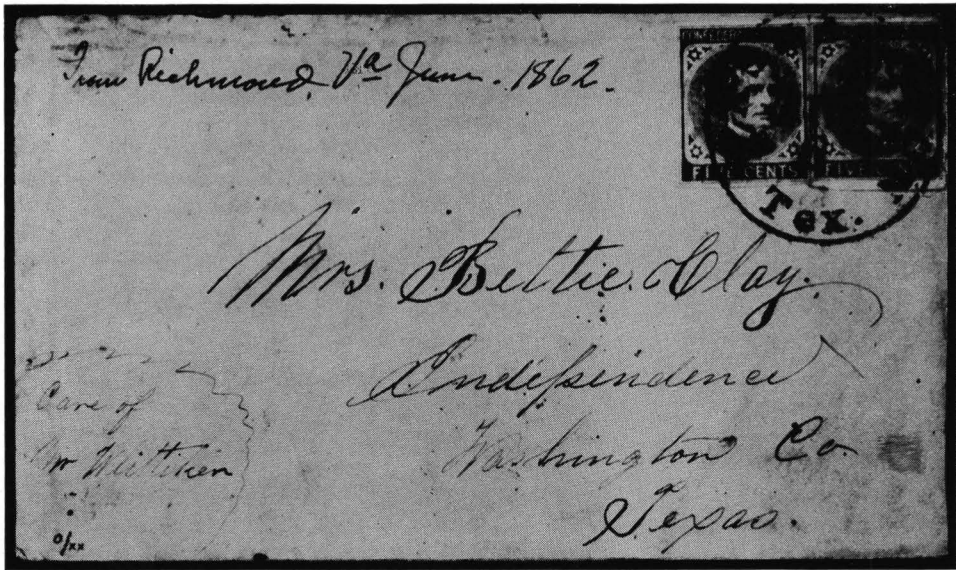 From Richmond, Va June. 1862.
FIVE CENTS FIVE
Tex.
Mrs. Bettie Clay.
Independence
Washington Co.
Texas.
Care of
Mr Whitten